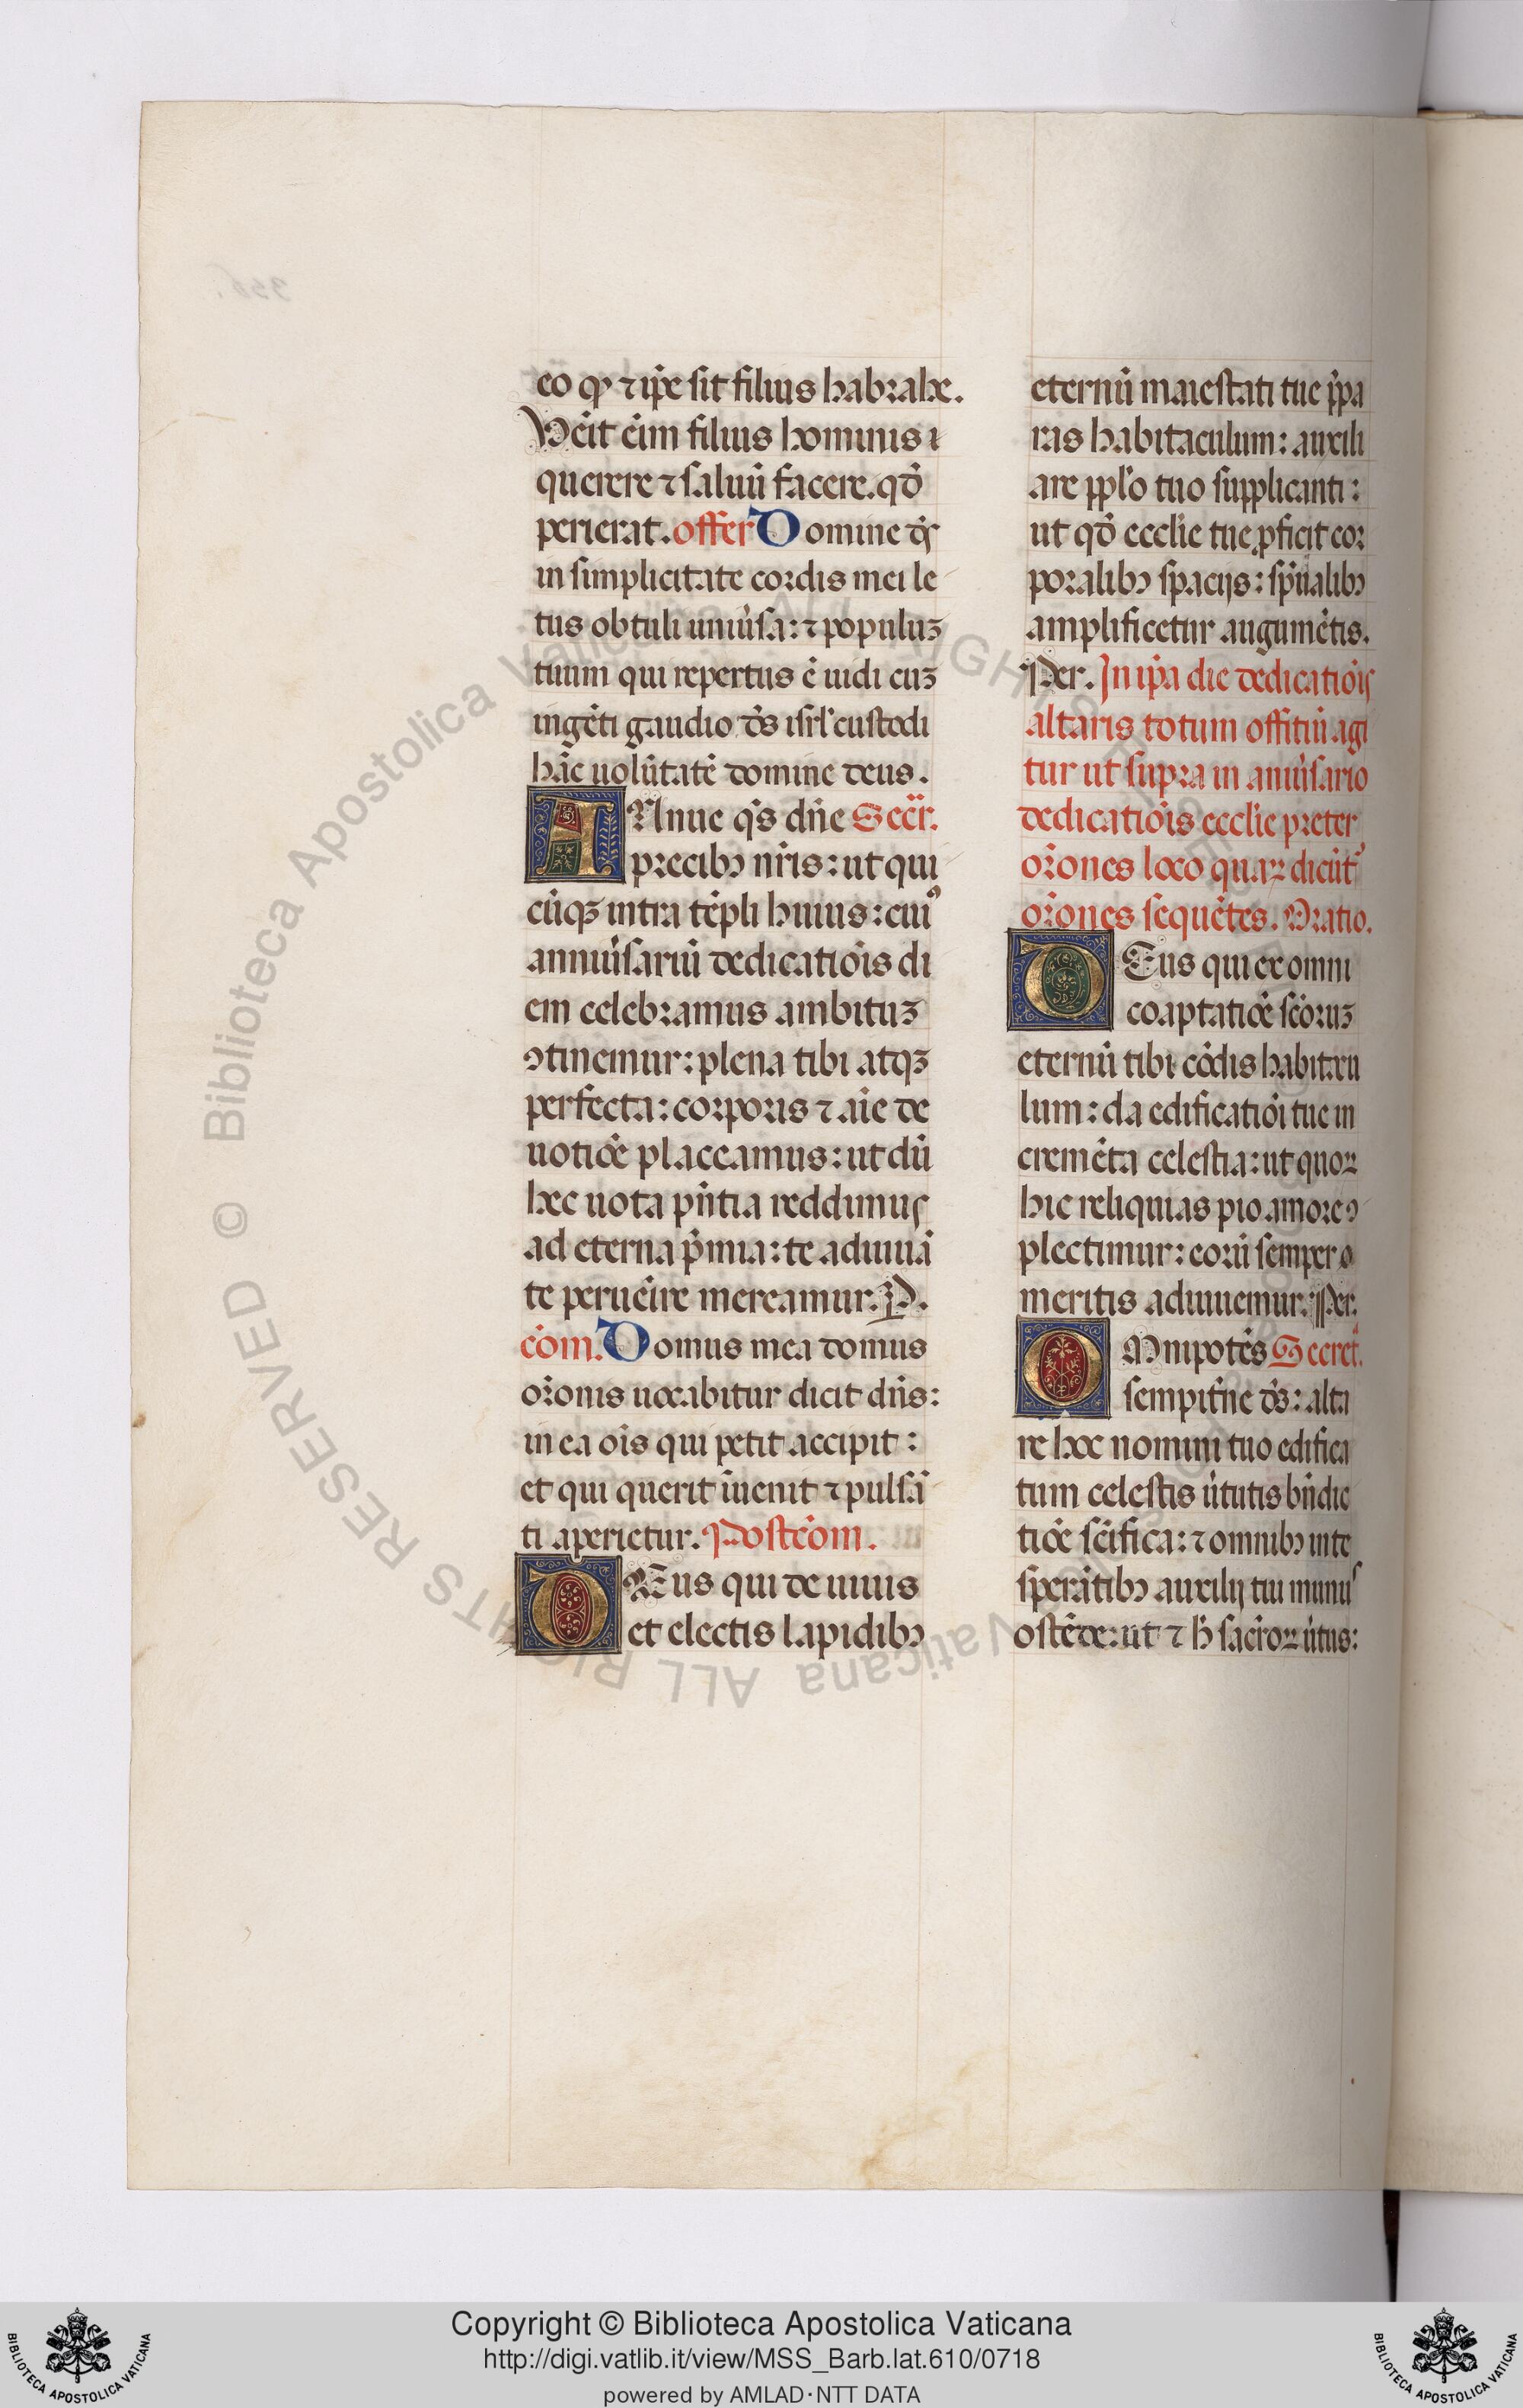 eo qꝫ ⁊ ip̄e sit filius habrahe.
Venit ēim filius hominis i
querere ⁊ saluū facere. qď
perierat. offer Domine ds̄
in simplicitate cordis mei le
tus obtuli uniūsa: ⁊ populuꝫ
tuum qui repertus ē uidi cuꝫ
ingēti gaudio. ds̄ isrl̄ custodi
hāc uolūtatē domine deus.
ANnue qs̄ dn̄e Secr̄.
precibꝫ nr̄is: ut qui
cūqꝫ intra tēpli huius: cuiꝰ
anniūsariū dedicatiōis di
em celebramus ambituꝫ
ꝯtinemur: plena tibi atqꝫ
perfecta: corporis ⁊ aīe de
uotiōe placeamus: ut dū
hec uota pn̄tia reddimus
ad eterna p̄mia: te adiuuā
te peruēire mereamur. P.
cōm. Domus mea domus
or̄onis uocabitur dicit dn̄s:
in ea oīs qui petit accipit:
et qui querit īuenit ⁊ pulsā
ti aperietur. Postcōm.
DEus qui de uiuis
et electis lapidibꝫ
eternū maiestati tue p̄pa
ras habitaculum: auxili
are ppl̄o tuo supplicanti:
ut qď eccl̄ie tue ꝓficit cor
poralibꝫ spacijs: sp̄ualibꝫ
amplificetur augumētis.
Per. In ip̄a die dedicatiōis
altaris totum offitiū agi
tur ut supra in aniūsario
dedicatiōis eccl̄ie preter
or̄ones loco quaꝝ dicūtꝰ
or̄ones sequētes. Oratio.
DEus qui ex omni
coaptatiōe sc̄oruꝫ
eternū tibi cōdis habitacu
lum: da edificatiōi tue in
cremēta celestia: ut quoꝝ
hic reliquias pio amore ꝯ
plectimur: eorū semper
meritis adiuuemur. Per.
OMnipotēs Secret.
sempit̄ne ds̄: alta
re hoc nomini tuo edifica
tum celestis ūtutis bn̄dic
tiōe sc̄ifica: ⁊ omnibꝫ in te
sperātibꝫ auxilij tui munus
ostēde: ut ⁊ h̄ sac̄roꝝ ūtus:
Copyright © Biblioteca Apostolica Vaticana
http://digi.vatlib.it/view/MSS_Barb.lat.610/0718
powered by AMLAD·NTT DATA
BIBLIOTECA APOSTOLICA VATICANA
BIBLIOTECA APOSTOLICA VATICANA
© Biblioteca Apostolica Vaticana ALL RIGHTS RESERVED